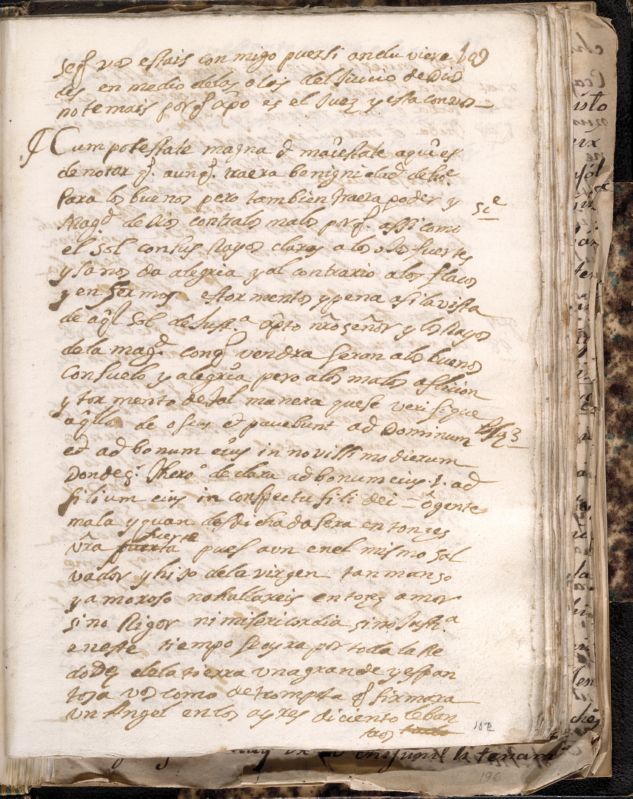 señor vos estais con migo pues si an du viere
des en medio de los oleis del Juicio de Dios
no temais porq̃ apo es el Juez y esta con vos
Cum potestate magna et maiestate aqui es
de notar q̃ aunq̃ traera benignidad
Para los buenos pero tambien traera poder y
contra los malos porq̃ assi como
el Sol con sus Rayos claros a los ojos fuertes
y sanos da alegria y al contrario a los flacos
y enfermos es tormento y pena asi la vista
de aq̃l Sol de Justª xpto nr̃o señor y los Rayos
de la mag.d conq̃ vendra seran a los buenos
Consuelo y alegria pero a los malos aflicion
y tormento de tal manera que se verifique
aq̃llo de oseas et pavebunt ad Dominum
et ad bonum eius in novissimo dierum
Donde S. Hieroº declara ad bonum eius .i. ad
filium eius in conspectu fili dei o gente
mala y quan desdichada sera entonzes
vr̃a suerte pues aun en el mismo sal
vador y hijo de la virgen tan manso
y amoroso no hallareis entonz amor
sino Rigor ni misericordia sino Justª
en este tiempo se oyra por toda la Re
dondez de la tierra una grande y espan
tosa voz como de trompeta q̃ formara
un Angel en los ayres diciendo leban
taos
102
196